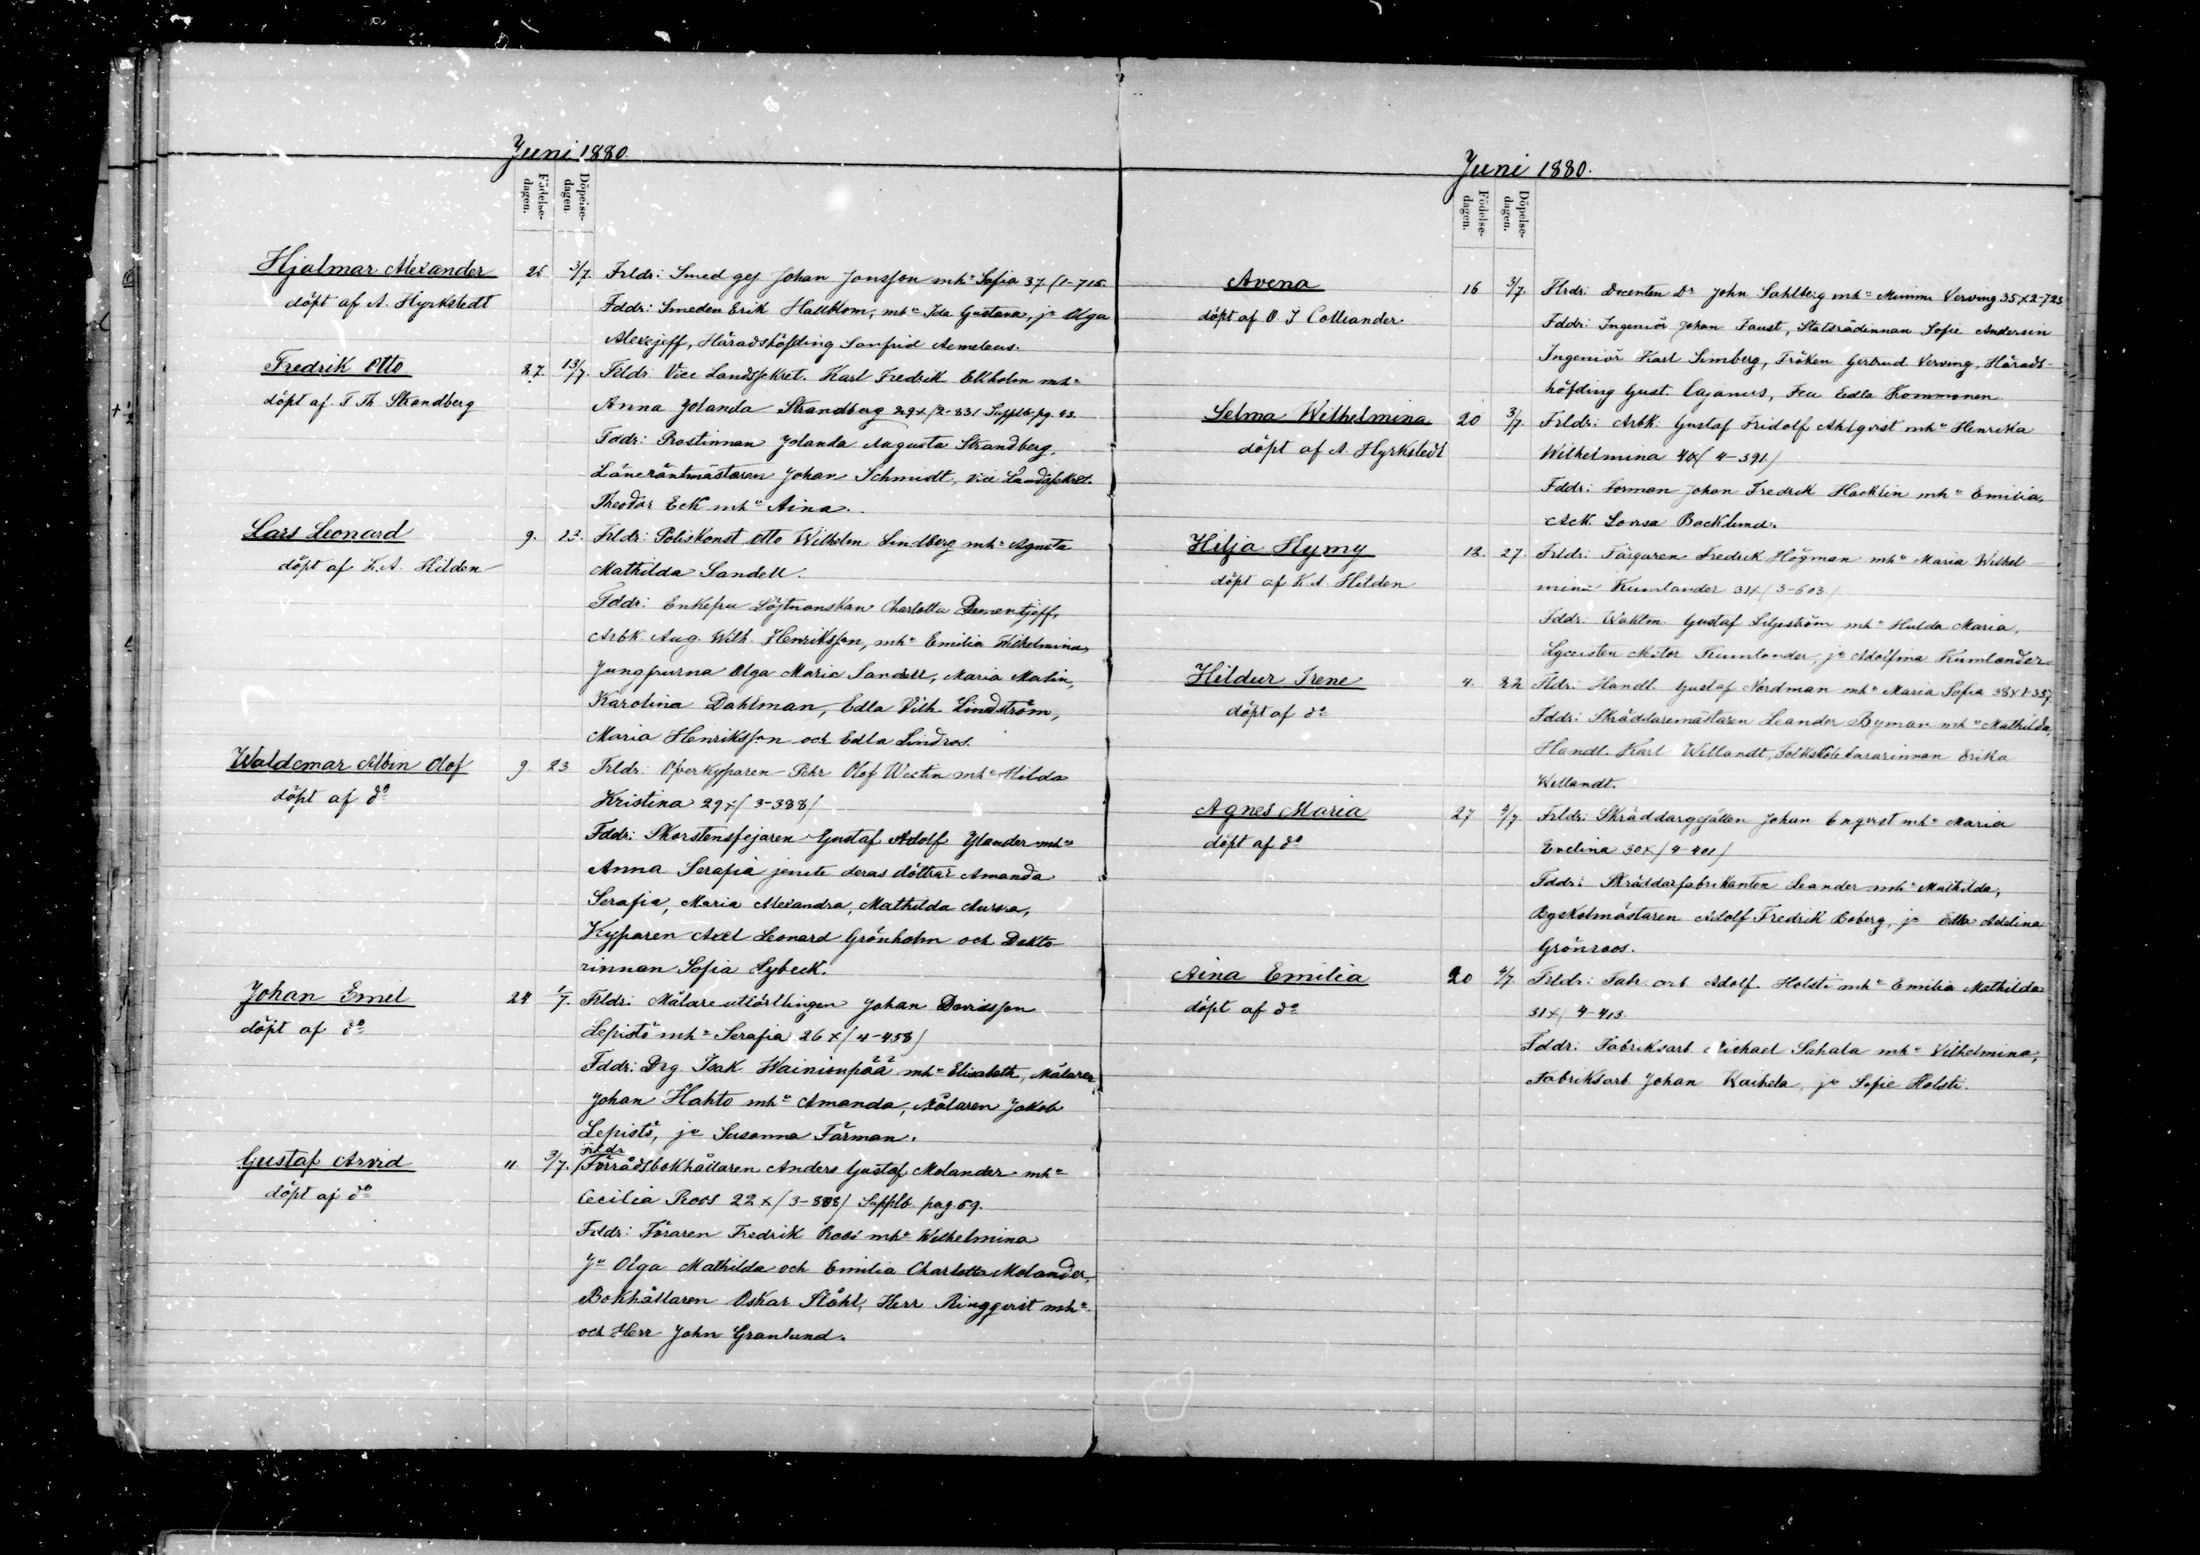 Juni 1880.
Födelse-dagen.
Döpelse-dagen.
Hjalmar Alexander
döpt af A. Hyrkstedt
25 3/7. Frldr: Smed ges Johan Jonsson mh. Sofia 37. (1-715.
Fddr: Smeden Erik Hallblom, mh. Ida Gustava, j. Olga
Alexejeff, Häradshöfding Sanfrid Aemeleus.
Fredrik Otto
döpt af. T Th Strandberg
27. 13/7. Fldr. Vice Landssekret. Karl Fredrik Ekholm mh.
Anna Jolanda Strandberg 29 x/2-831 Supplb. pg. 93.
Fddr: Prostinnan Jolanda Augusta Strandberg,
Läneräntmästaren Johan Schmidt, Vice Landssekret.
Theodor Eck mh. Aina.
Lars Leonard
döpt af K. A. Hilden
9. 23. Frldr: Poliskonst Otto Wilhelm Lindberg mh. Agneta
Mathilda Sandell.
Fddr: Enkefru Löjtnanskan Charlotta Dementjeff,
Arbk. Aug. Wilh. Henriksson, mh. Emilia Wilhelmina,
Jungfrurna Olga Maria Sandell, Maria Malin,
Karolina Dahlman, Edla Vilh. Lindström,
Maria Henriksson och Edla Lindros.
Waldemar Albin Olof
döpt af do
9. 23 Frldr: Öfverkyparen Pehr Olof Westin mh. Hilda
Kristina 29 x/ 3-388/
Fddr: Skorstensfejaren Gustaf Adolf Ylander mh.
Anna Serafia jemte deras döttrar Amanda
Serafia, Maria Alexandra, Mathilda Aurora,
Kyparen Axel Leonard Grönholm och Dokto-
rinnan Sofia Lybeck.
Johan Emel
döpt af do
24 1/7. Frldr: Målare utlärlingen Johan Davidsson
Lepistö mh. Serafia 26 x/ 4-458/
Fddr: Drg Isak Wainionpää mh. Elisabeth, Målaren
Johan Hahto mh. Amanda, Målaren Jakob
Lepistö, j. Susanna Färman.
Frldr
Gustaf Arvid
döpt af do
11 3/7. Förrådsbokhållaren Anders Gustaf Molander mh.
Cecilia Roos 22 x/ 3-808/ Supplb. pag. 59.
Fddr: Föraren Fredrik Roos mh. Wilhelmina
J. Olga Mathilda och Emilia Charlotta Molander,
Bokhållaren Oskar Ståhl, Herr Ringqvist mh.
och Herr John Granlund.
Juni 1880.
Födelse-dagen.
Döpelse-dagen.
Avena
döpt af O J Colliander
16 3/7. Flrdr: Docenten Dr John Sahlberg mh. Mimmi Verving 35 x 2-723
Fddr: Ingeniör Johan Faust, Statsrådinnan Sofie Andersin
Ingeniör Karl Simberg, Fröken Gertrud Verving, Härads-
höfding Gust. Cajanus, Fru Edla Hommonen
Selma Wilhelmina
döpt af A. Hyrkstedt
20 3/7. Frldr: Arbk. Gustaf Fridolf Ahlqvist mh. Henrika
Wilhelmina 40 x/ 4-391/
Fddr: Forman Johan Fredrik Hacklin mh. Emilia,
Ack. Lovisa Backlund.
Hilja Hymy
döpt af K A. Hilden
12. 27. Frldr: Färgaren Fredrik Högman mh. Maria Wilhel-
mina Kumlander 31 x/ 3-603/
Fddr: Waktm. Gustaf Liljeström mh. Hulda Maria,
Lyceisten Viktor Kumlander, j. Adolfina Kumlander
Hildur Irene
döpt af do
4. 22 Fldr: Handl. Gustaf Nordman mh. Maria Sofia 38 x 1-357
Fddr: Skräddaremästaren Leander Byman mh. Mathilda,
Handl. Karl Willandt, Folkskolelärarinnan Erika
Willandt.
Agnes Maria
döpt af do
27 4/7 Frldr: Skräddargesällen Johan Enqvist mh. Maria
Evelina 30 x/ 4-401/
Fddr: Skräddarfabrikanten Leander mh. Mathilda,
Byskolmästaren Adolf Fredrik Boberg, j. Edla Adelina
Grönroos.
Aina Emilia
döpt af do
20 4/7. Frldr: Fabr. arb Adolf Holsti mh. Emilia Mathilda
31 x/ 4-413.
Fddr: Fabriksarb. Michael Sahala mh. Vilhelmina,
Fabriksarb. Johan Kaihela, j. Sofie Holsti.